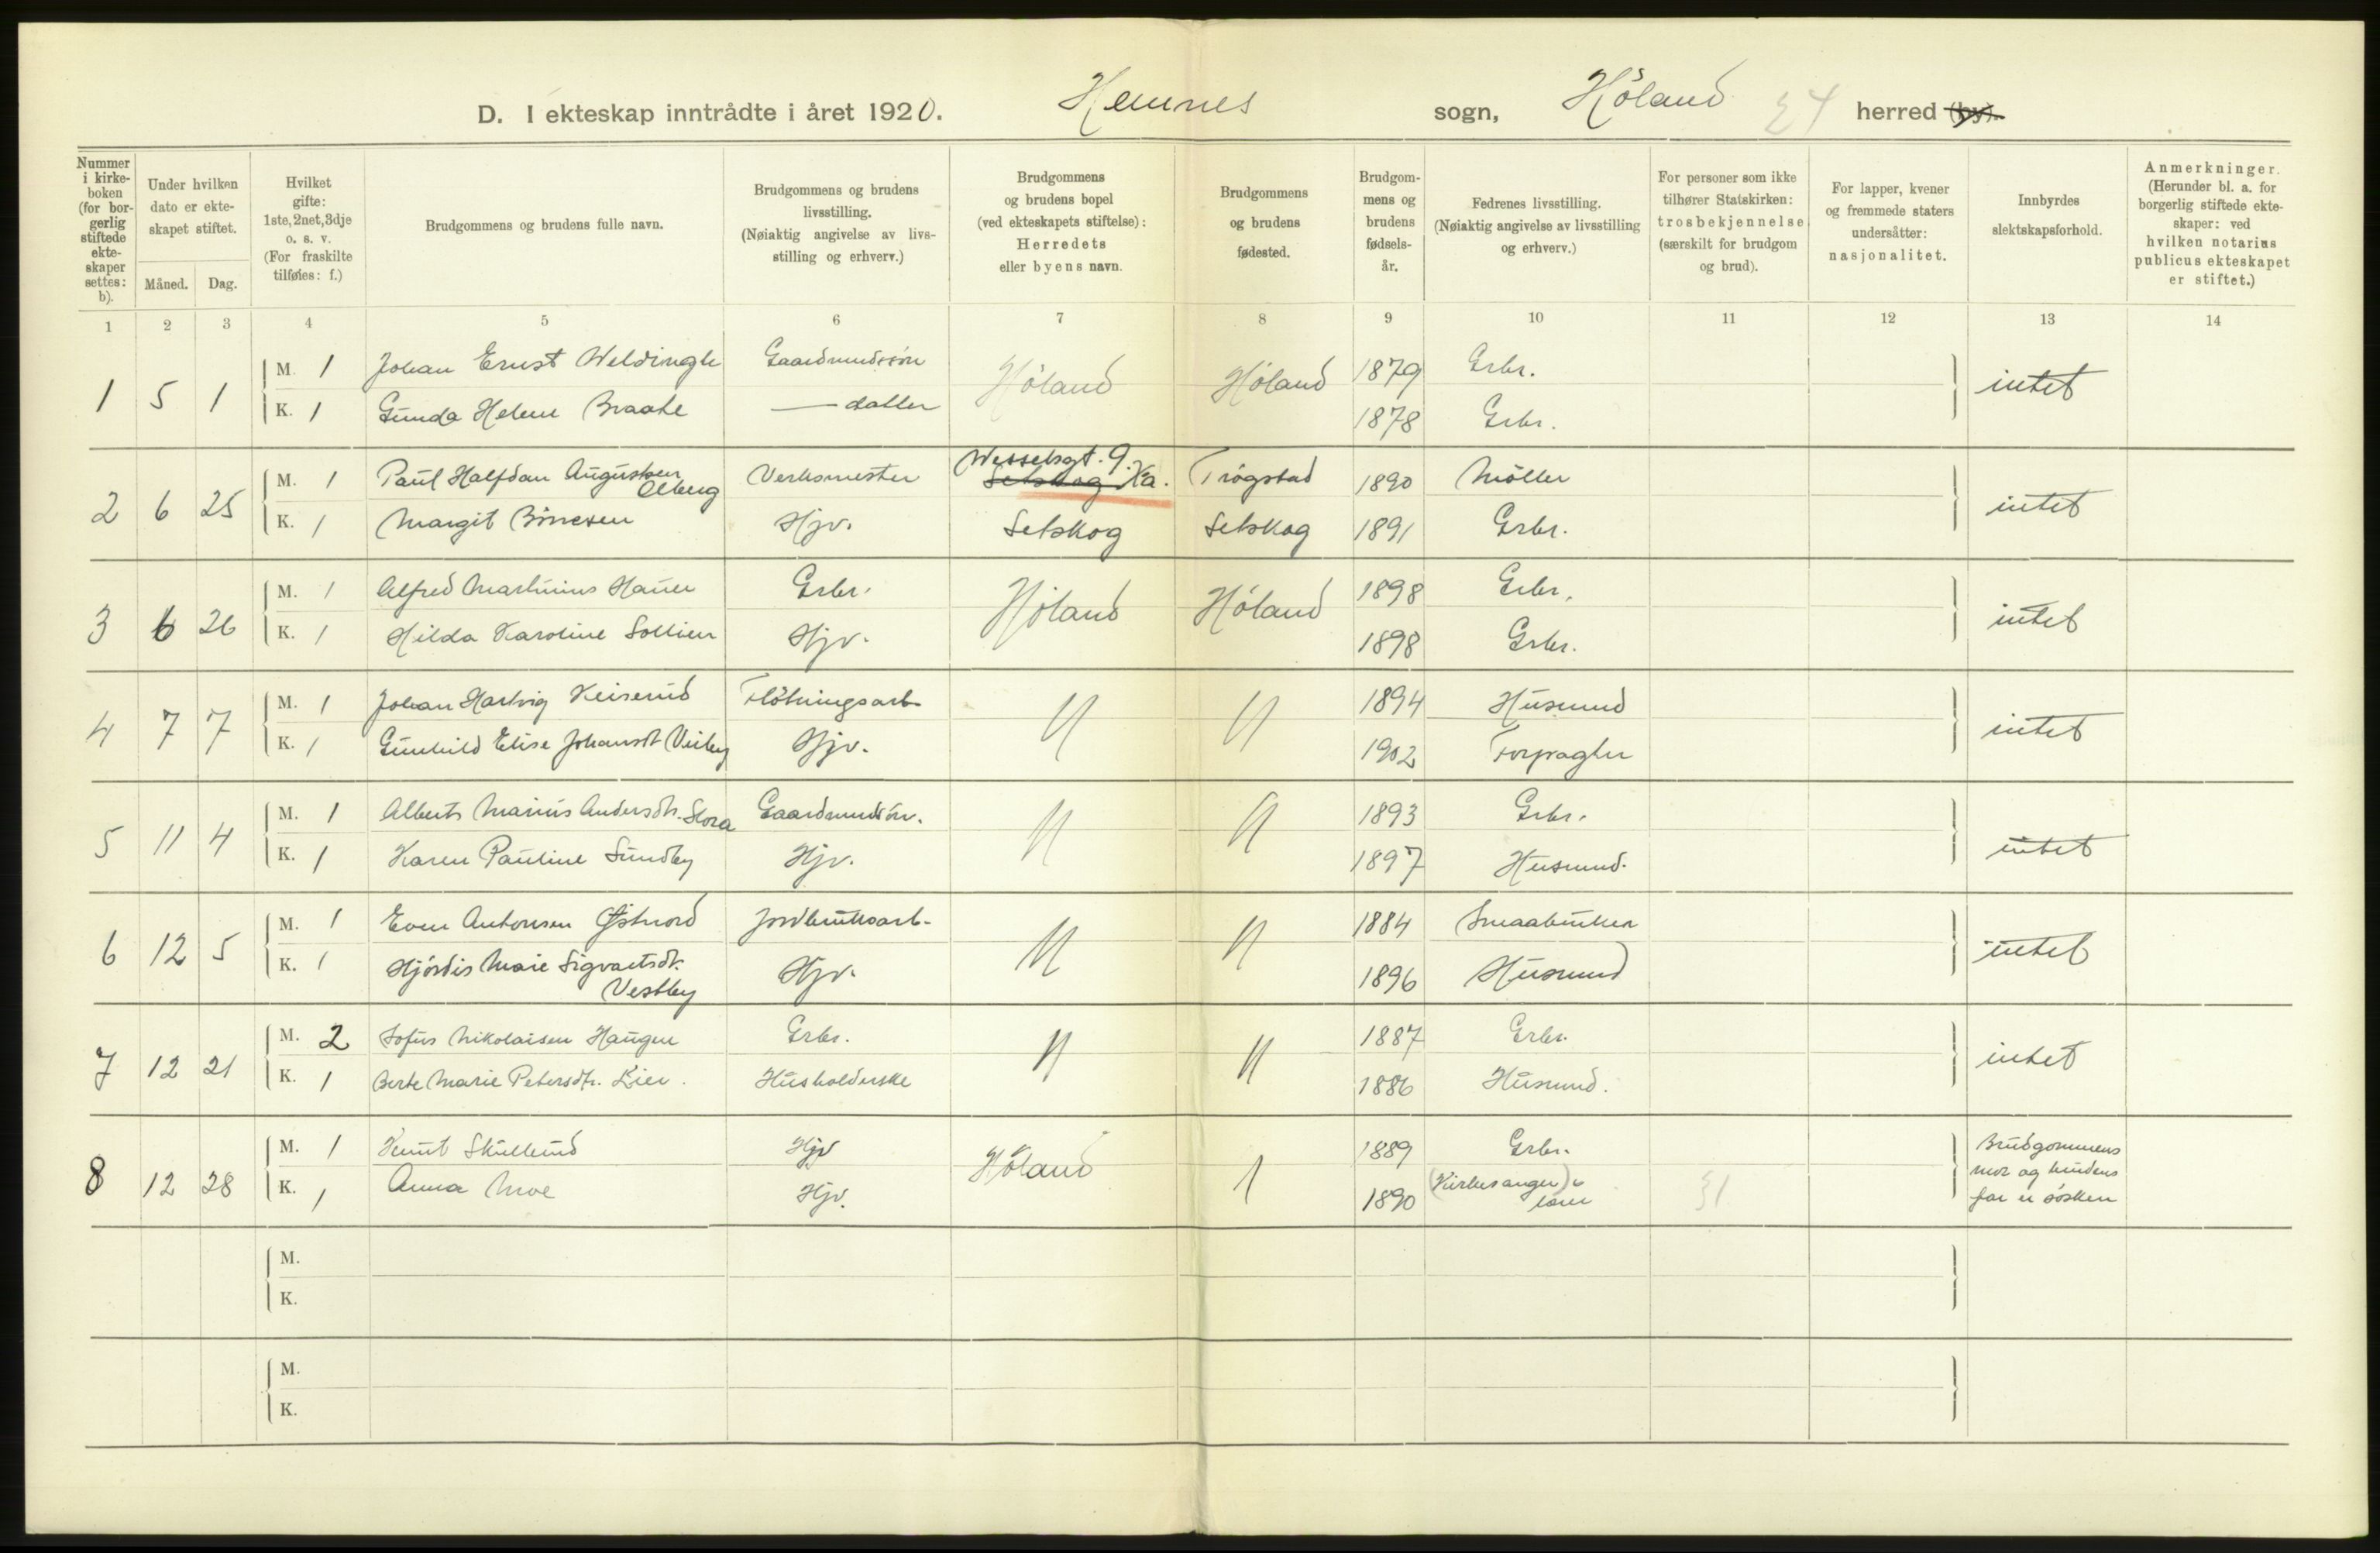 D. I ekteskap inntrådte i året 1920. Hemnes sogn, Höland 24 herred (by).
Nummer i kirke-boken (for bor-gerlig stiftede ekte-skaper settes: b).
Under hvilken dato er ekte-skapet stiftet.
Måned. Dag.
Hvilket gifte: 1ste, 2net, 3dje o. s. v. (For fraskilte tilføies: f.)
Brudgommens og brudens fulle navn.
Brudgommens og brudens livsstilling. (Nøiaktig angivelse av livs-stilling og erhverv.)
Brudgommens og brudens bopel (ved ekteskapets stiftelse): Herredets eller byens navn.
Brudgommens og brudens fødested.
Brudgom-mens og brudens fødsels-år.
Fedrenes livsstilling. (Nøiaktig angivelse av livsstilling og erhverv.)
For personer som ikke tilhører Statskirken: trosbekjennelse (særskilt for brudgom og brud).
For lapper, kvener og fremmede staters undersåtter: nasjonalitet.
Innbyrdes slektskapsforhold.
Anmerkninger. (Herunder bl. a. for borgerlig stiftede ekte-skaper: ved hvilken notarius publicus ekteskapet er stiftet.)
1 2 3 4 5 6 7 8 9 10 11 12 13 14
1 5 1 M. 1 Johan Ernst Weldingh Gaardmandssön Höland Höland 1879 Grbr. intet
K. 1 Gunda Helene Braate — datter 1878 Grbr.
2 6 25 M. 1 Paul Halfdan Augustsen Olberg Verksmester Wesselsgt. 9. Ka. Setskog Trögstad 1890 Möller intet
K. 1 Margit Börresen Hjv. Setskog Setskog 1891 Grbr.
3 6 26 M. 1 Alfred Martinius Hauer Grbr. Höland Höland 1898 Grbr. intet
K. 1 Hilda Karoline Sollien Hjv. 1898 Grbr.
4 7 7 M. 1 Johan Hartvig Keiserud Flötningsarb. " " 1894 Husmand intet
K. 1 Gunhild Elise Johansdt Viuby Hjv. 1902 Forpagter
5 11 4 M. 1 Albert Marius Andersdtr. Slora Gaardmandsön. " " 1893 Grbr. intet
K. 1 Karen Pauline Sundby Hjv. 1897 Husmand.
6 12 5 M. 1 Even Antonsen Østnord Jordbruksarb. " " 1884 Smaabruker intet
K. 1 Hjördis Marie Sigvartsdtr. Vestby Hjv. 1896 Husmand
7 12 21 M. 2 Sofus Nikolaisen Haugen Grbr. " " 1887 Grbr. intet
K. 1 Berte Marie Petersdtr. Lier. Husholderske 1886 Husmand.
8 12 28 M. 1 Knut Skullerud Hjv Höland 1 1889 Grbr. Brudgommens mor og brudens far er søsken
K. 1 Anna Moe Hjv. 1890 (Kirkesanger) lærer
M.
K.
M.
K.